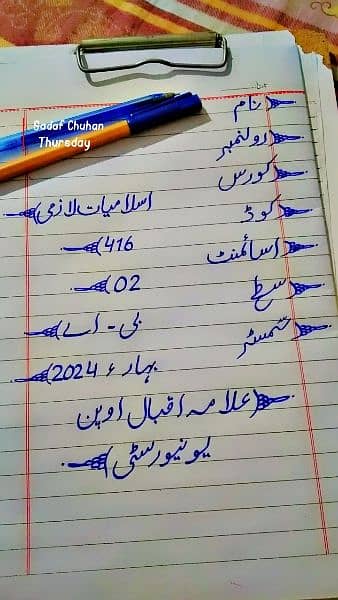 Sadaf Chuhan
Thursday
نام
رولنمبر
کورس اسلامیات لازمی
کوڈ 416
اسائمنٹ 02
سطح بی - اے
سمسٹر بہار ء 2024
علامہ اقبال اوپن
یونیورسٹی